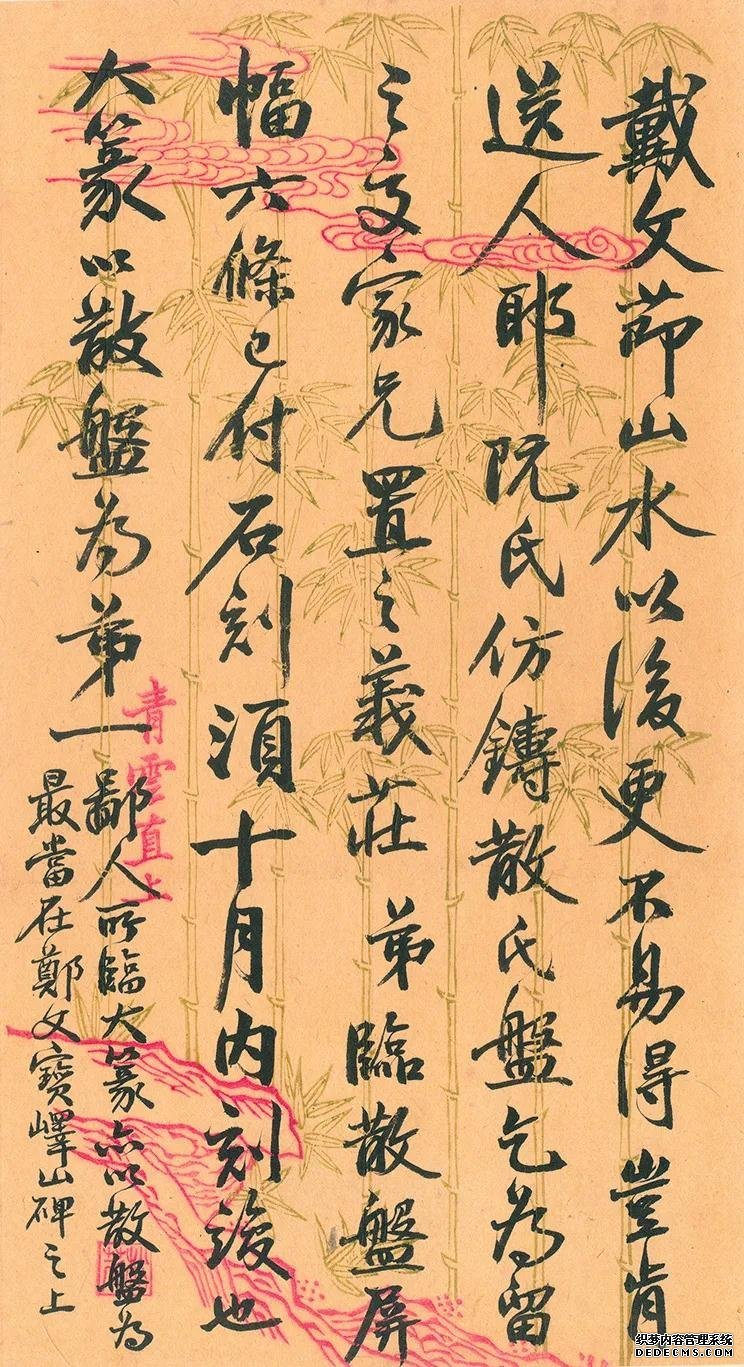 戴文節山水以後更不易得豈肯
送人耶阮氏仿鑄散氏盤乞為留
之交家兄置之義莊弟臨散盤屏
幅六條已付石刻須十月內刻竣也
大篆以散盤為第一
鄙人所臨大篆亦以散盤為
最當在鄭文寶嶧山碑之上
青雲直上
织梦内容管理系统
DEDECMS.COM